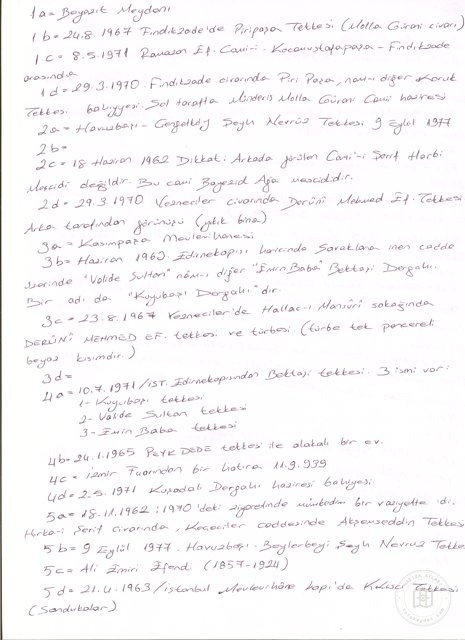 1a = Beyazıt Meydanı
1b = 24.8.1967 Fındıkzade'de Piripaşa Tekkesi (Molla Gürani civarı)
1c = 8.5.1971 Ramazan Ef. Cami-i. Kocamustafapaşa - Fındıkzade
arasında
1d = 29.3.1970. Fındıkzade civarında Piri Paşa, nam-ı diğer Koruk
Tekkesi bakiyyesi. Sol tarafta Münderis Molla Gürani Cami haziresi
2a = Havuzbaşı - Çengelköy Şeyh Nevruz Tekkesi 9 Eylül 1977
2b =
2c = 18 Haziran 1962 Dikkat: Arkada görülen Cami-i Şerif Harbi
Mescidi değildir. Bu cami Bayezid Ağa mescididir.
2d = 29.3.1970 Vezneciler civarında Derûni Mehmed Ef. Tekkesi
Arka tarafından görünüşü (yıkık bina)
3a = Kasımpaşa Mevlevihanesi
3b = Haziran 1963. Edirnekapısı haricinde Savaklara inen cadde
üzerinde "Valide Sultan" nâm-ı diğer "Emin Baba" Bektaşi Dergahı.
Bir adı da "Kuyubaşı Dergahı" dır.
3c = 23.8.1967 Vezneciler'de Hallac-ı Mansûrî sokağında
DERÛNÎ MEHMED EF. tekkesi ve türbesi (türbe tek pencereli
beyaz kısımdır.)
3d =
4a = 10.7.1971/İST. Edirnekapısından Bektaşi tekkesi. 3 ismi var:
1- Kuyubaşı tekkesi
2- Valide Sultan tekkesi
3- Emin Baba tekkesi
4b = 24.1.1965 PEYK DEDE tekkesi ile alakalı bir ev.
4c = İzmir Fuarından bir hatıra 11.9.939
4d = 2.5.1971 Kuşadalı Dergahı haziresi bakiyesi.
5a = 18.11.1962; 1970'deki ziyaretinde münhedim bir vaziyette idi.
Hırka-i Şerif civarında, Keçeciler caddesinde Akşemseddin Tekkesi
5b = 9 Eylül 1977. Havuzbaşı. Beylerbeyi Şeyh Nevruz Tekkesi
5c = Ali Emiri Efendi (1857-1924)
5d = 21.4.1963/İstanbul Mevlevihâne kapı'da Tekkesi
(Sandukalar)